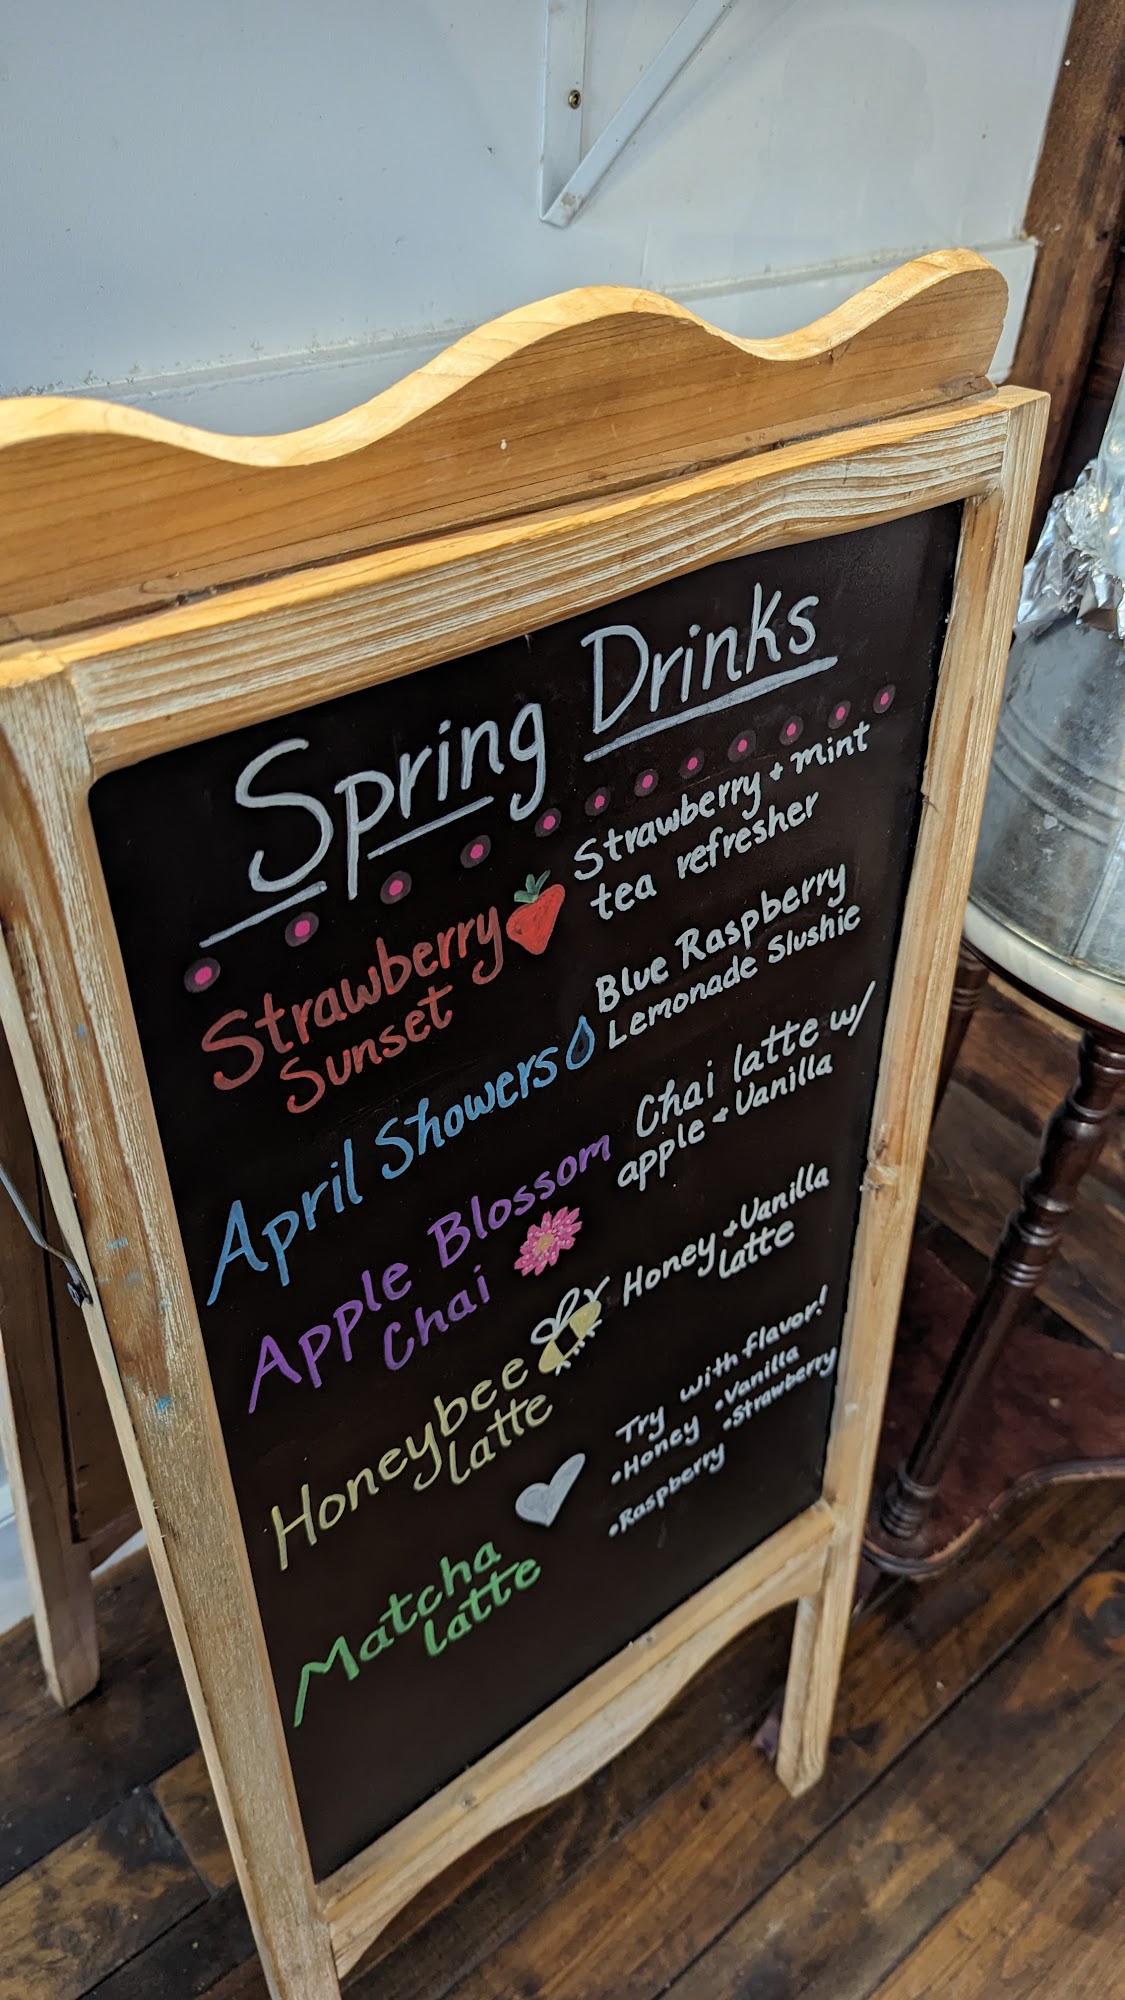 Spring Drinks
Strawberry
Sunset
Strawberry + mint
tea refresher
April Showers
Blue Raspberry
Lemonade Slushie
Apple Blossom
Chai
Chai latte w/
apple + Vanilla
Honeybee
latte
Honey + Vanilla
latte
Matcha
latte
Try with flavor!
•Honey •Vanilla
•Strawberry
•Raspberry